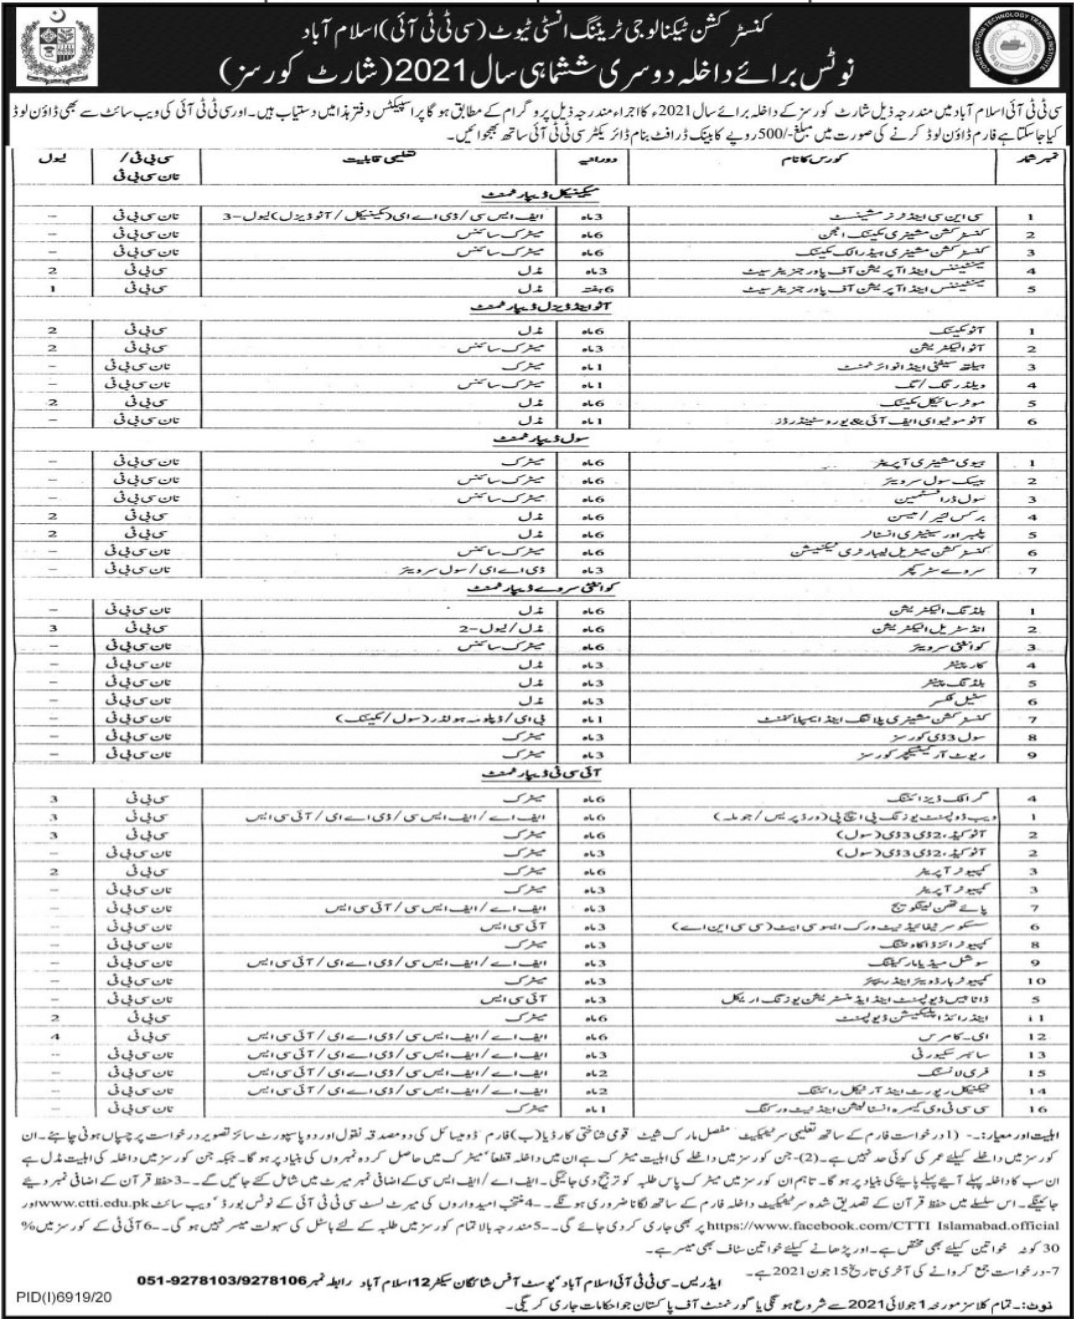 کنسٹرکشن ٹیکنالوجی ٹریننگ انسٹی ٹیوٹ (سی ٹی ٹی آئی) اسلام آباد
نوٹس برائے داخلہ دوسری ششماہی سال 2021 (شارٹ کورسز)
CONSTRUCTION TECHNOLOGY TRAINING INSTITUTE
سی ٹی ٹی آئی اسلام آباد میں مندرجہ ذیل شارٹ کورسز کے داخلہ برائے سال 2021ء کا اجراء مندرجہ ذیل پروگرام کے مطابق ہو گا پراسپیکٹس دفتر ہذا میں دستیاب ہیں۔ اور سی ٹی ٹی آئی کی ویب سائٹ سے بھی ڈاؤن لوڈ
کیا جا سکتا ہے فارم ڈاؤن لوڈ کرنے کی صورت میں مبلغ -/500 روپے کا بینک ڈرافٹ بنام ڈائریکٹر سی ٹی ٹی آئی ساتھ بھجوائیں۔
نمبر شمار کورس کا نام دورانیہ تعلیمی قابلیت سی بی ٹی / نان سی بی ٹی لیول
مکینیکل ڈیپارٹمنٹ
1 سی این سی اینڈ لرنر مشینسٹ 3 ماہ ایف ایس سی / ڈی اے ای (مکینیکل / آٹو ڈیزل) لیول-3 نان سی بی ٹی –
2 کنسٹرکشن مشینری مکینک انجن 6 ماہ میٹرک سائنس نان سی بی ٹی –
3 کنسٹرکشن مشینری ہیڈرالک مکینک 6 ماہ میٹرک سائنس نان سی بی ٹی –
4 مینٹیننس اینڈ آپریشن آف پاور جنریٹر سیٹ 3 ماہ مڈل سی بی ٹی 2
5 مینٹیننس اینڈ آپریشن آف پاور جنریٹر سیٹ 6 ہفتہ مڈل سی بی ٹی 1
آٹو اینڈ ڈیزل ڈیپارٹمنٹ
1 آٹو مکینک 6 ماہ مڈل سی بی ٹی 2
2 آٹو الیکٹریشن 3 ماہ میٹرک سائنس سی بی ٹی 2
3 ہیلتھ سیفٹی اینڈ انوائرنمنٹ 1 ماہ میٹرک نان سی بی ٹی –
4 ویلڈرنگ / نگ 1 ماہ میٹرک سائنس نان سی بی ٹی –
5 موٹر سائیکل مکینک 6 ماہ مڈل سی بی ٹی 2
6 آٹوموٹیو ای ایف آئی & یورو سٹینڈرڈز 1 ماہ مڈل نان سی بی ٹی –
سول ڈیپارٹمنٹ
1 ہیوی مشینری آپریٹر 6 ماہ میٹرک نان سی بی ٹی –
2 بیسک سول سرویئر 6 ماہ میٹرک سائنس نان سی بی ٹی –
3 سول ڈرافٹسمین 6 ماہ میٹرک سائنس نان سی بی ٹی –
4 برکس لئیر / میسن 6 ماہ مڈل سی بی ٹی 2
5 پلمبر اور سینیٹری انسٹالر 6 ماہ مڈل سی بی ٹی 2
6 کنسٹرکشن میٹریل لیبارٹری ٹیکنیشن 6 ماہ میٹرک سائنس نان سی بی ٹی –
7 سروے سٹرکچر 3 ماہ ڈی اے ای / سول سرویئر نان سی بی ٹی –
کوانٹٹی سروے ڈیپارٹمنٹ
1 بلڈنگ الیکٹریشن 6 ماہ مڈل نان سی بی ٹی –
2 انڈسٹریل الیکٹریشن 6 ماہ مڈل / لیول-2 سی بی ٹی 3
3 کوانٹٹی سرویئر 6 ماہ میٹرک سائنس نان سی بی ٹی –
4 کارپینٹر 3 ماہ مڈل نان سی بی ٹی –
5 بلڈنگ پینٹر 3 ماہ مڈل نان سی بی ٹی –
6 سٹیل فکسر 3 ماہ مڈل نان سی بی ٹی –
7 کنسٹرکشن مشینری پلاننگ اینڈ ایمپلائمنٹ 1 ماہ بی ای / ڈپلومہ ہولڈر (سول / مکینک) نان سی بی ٹی –
8 سول 3 ڈی کورسز 3 ماہ میٹرک نان سی بی ٹی –
9 ریوٹ آرکیٹیکچر کورسز 3 ماہ میٹرک نان سی بی ٹی –
آئی سی ٹی ڈیپارٹمنٹ
4 گرافک ڈیزائننگ 6 ماہ میٹرک سی بی ٹی 3
1 ویب ڈویلپمنٹ یوزنگ پی ایچ پی (ورڈپریس / جوملہ) 6 ماہ ایف اے / ایف ایس سی / ڈی اے ای / آئی سی ایس سی بی ٹی 3
2 آٹو کیڈ، 2 ڈی 3 ڈی (سول) 6 ماہ میٹرک سی بی ٹی 3
2 آٹو کیڈ، 2 ڈی 3 ڈی (سول) 3 ماہ میٹرک نان سی بی ٹی –
3 کمپیوٹر آپریٹر 6 ماہ میٹرک سی بی ٹی 2
3 کمپیوٹر آپریٹر 3 ماہ میٹرک نان سی بی ٹی –
7 پائے تھن لینگویج 3 ماہ ایف اے / ایف ایس سی / آئی سی ایس نان سی بی ٹی –
6 سسکو سرٹیفائیڈ نیٹ ورک ایسوسی ایٹ (سی سی این اے) 3 ماہ آئی سی ایس نان سی بی ٹی –
8 کمپیوٹرائزڈ اکاؤنٹنگ 3 ماہ میٹرک نان سی بی ٹی –
9 سوشل میڈیا مارکیٹنگ 3 ماہ ایف اے / ایف ایس سی / ڈی اے ای / آئی سی ایس نان سی بی ٹی –
10 کمپیوٹر ہارڈویئر اینڈ ریپئر 3 ماہ میٹرک نان سی بی ٹی –
5 ڈاٹا بیس ڈیولپمنٹ اینڈ ایڈمنسٹریشن یوزنگ اوریکل 3 ماہ آئی سی ایس نان سی بی ٹی –
11 اینڈرائڈ ایپلیکیشن ڈیولپمنٹ 6 ماہ میٹرک سی بی ٹی 2
12 ای۔کامرس 6 ماہ ایف اے / ایف ایس سی / ڈی اے ای / آئی سی ایس سی بی ٹی 4
13 سائبر سیکیورٹی 3 ماہ ایف اے / ایف ایس سی / ڈی اے ای / آئی سی ایس نان سی بی ٹی –
15 فری لانسنگ 2 ماہ ایف اے / ایف ایس سی / ڈی اے ای / آئی سی ایس نان سی بی ٹی –
14 ٹیکنیکل رپورٹ اینڈ آرٹیکل رائٹنگ 2 ماہ ایف اے / ایف ایس سی / ڈی اے ای / آئی سی ایس نان سی بی ٹی –
16 سی سی ٹی وی کیمرہ انسٹالیشن اینڈ نیٹ ورکنگ 1 ماہ میٹرک نان سی بی ٹی –
اہلیت اور معیار:۔ (1 درخواست فارم کے ساتھ تعلیمی سرٹیفکیٹ، مفصل مارک شیٹ، قومی شناختی کارڈ یا (ب) فارم، ڈومیسائل کی دو مصدقہ نقول اور دو پاسپورٹ سائز تصویر درخواست پر چسپاں ہونی چاہئے۔ ان
کورسز میں داخلے کیلئے عمر کی کوئی حد نہیں ہے۔ (2)۔ جن کورسز میں داخلے کی اہلیت میٹرک ہے ان میں داخلہ قطعاً میٹرک میں حاصل کردہ نمبروں کی بنیاد پر ہو گا۔ جبکہ جن کورسز میں داخلہ کی اہلیت مڈل ہے
ان سب کا داخلہ پہلے آیئے پہلے پایئے کی بنیاد پر ہو گا۔ تاہم ان کورسز میں میٹرک پاس طلبہ کو ترجیح دی جائیگی۔ ایف اے / ایف ایس سی کے اضافی نمبر میرٹ میں شامل کئے جائیں گے۔ 3۔ حفظ قرآن کے اضافی نمبر دیئے
جائینگے۔ اس سلسلے میں حفظ قرآن کے تصدیق شدہ سرٹیفکیٹ داخلہ فارم کے ساتھ لگانا ضروری ہو نگے۔ 4۔ منتخب امیدواروں کی میرٹ لسٹ سی ٹی ٹی آئی کے نوٹس بورڈ، ویب سائٹ www.ctti.edu.pk اور
https://www.facebook.com/CTTI Islamabad.official پر بھی جاری کر دی جائے گی۔ 5۔ مندرجہ بالا تمام کورسز میں طلبہ کے لئے ہاسٹل کی سہولت میسر نہیں ہو گی۔ 6۔ آئی ٹی کے کورسز میں %
30 کوٹہ خواتین کیلئے بھی مختص ہے۔ اور پڑھانے کیلئے خواتین سٹاف بھی میسر ہے۔
7۔ درخواست جمع کروانے کی آخری تاریخ 15 جون 2021 ہے۔
ایڈریس۔ سی ٹی ٹی آئی اسلام آباد، پوسٹ آفس شائگان سیکٹر 12 اسلام آباد رابطہ نمبر 051-9278103/9278106
نوٹ:۔ تمام کلاسز مورخہ 1 جولائی 2021 سے شروع ہونگی یا گورنمنٹ آف پاکستان جو احکامات جاری کریگی۔
PID(I)6919/20